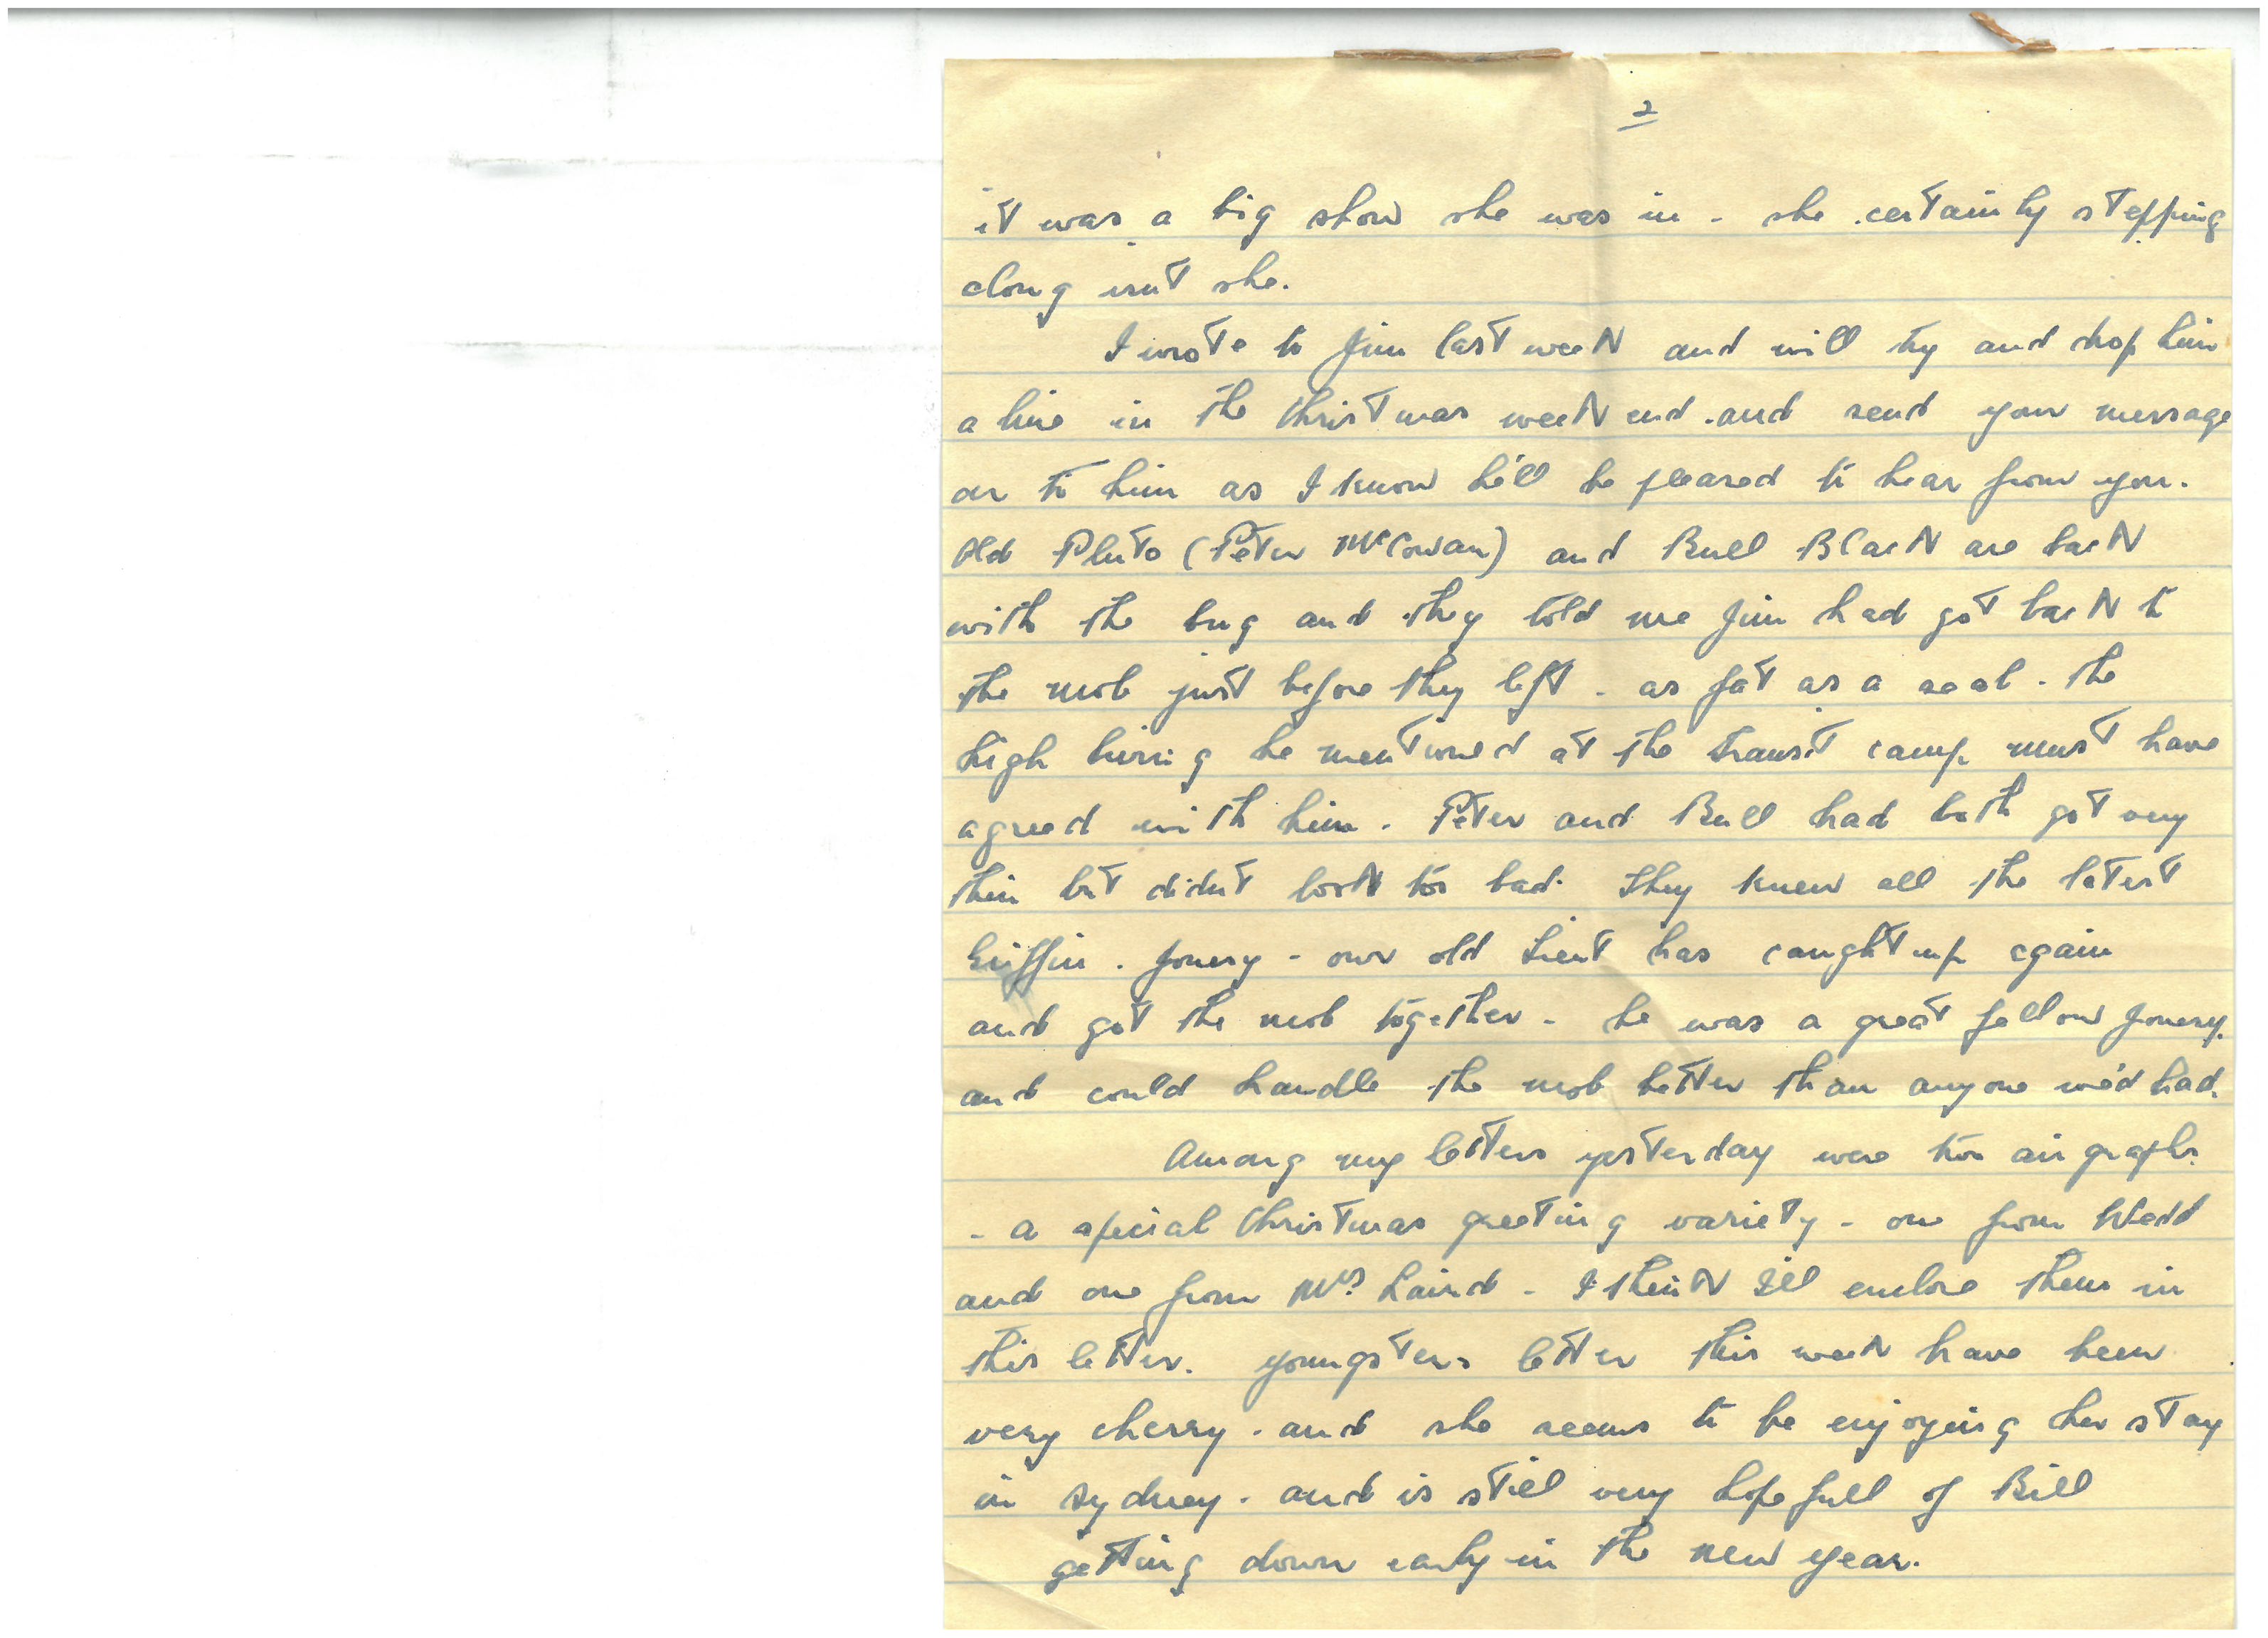 2
it was a big show she was in - she certainly stepping
along isnt she.
I wrote to Jim last week and will try and drop him
a line in the Christmas week end and send your message
on to him as I know he'll be pleased to hear from you.
Old Pluto (Peter McCowan) and Bull Black are back
with the bug and they told me Jim had got back to
the mob just before they left - as fat as a seal - the
high living he mentioned at the transit camp must have
agreed with him. Peter and Bull had both got very
thin but didnt look too bad. They knew all the latest
Griffin. Jonesy - our old Lieut has caught up again
and got the mob together - he was a great fellow Jonesy
and could handle the mob better than anyone we'd had.
Among my letters yesterday were two air graphs
- a special Christmas greeting variety - one from
and one from Mrs Laird - I think I'll enclose them in
this letter. Youngsters letter this week have been
very cherry - and she seems to be enjoying her stay
in Sydney - and is still very hope full of Bill
getting down early in the new year.